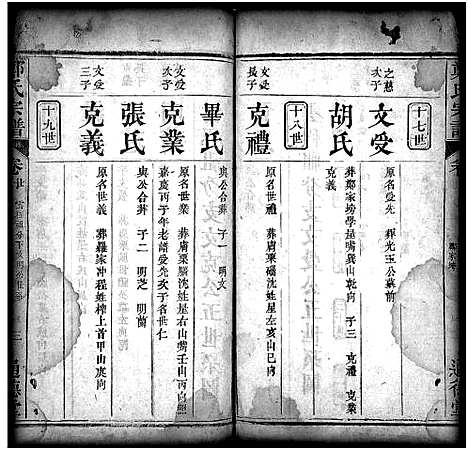 鄭氏宗譜
十七世
之慈
次子
文受
原名受先 葬光玉公墓前
胡氏
葬鄭家塝學屋嘴巽山乾向 子三 克禮 克業
克義
十八世
文受
長子
克禮
原名世禮 葬膚栗腦沈姓屋左亥山巳向
畢氏
與公合葬 子一 明文
文受
次子
克業
原名世業 葬膚栗腦沈姓屋右山嘴壬山丙向
嘉慶丙子年老譜受先次子名世仁
張氏
與公合葬 子二 明芝 明蘭
十九世
文受
三子
克義
原名世義 葬羅家冲程姓榨上首甲山庚向
氏宗譜
卷廿
三
通德堂